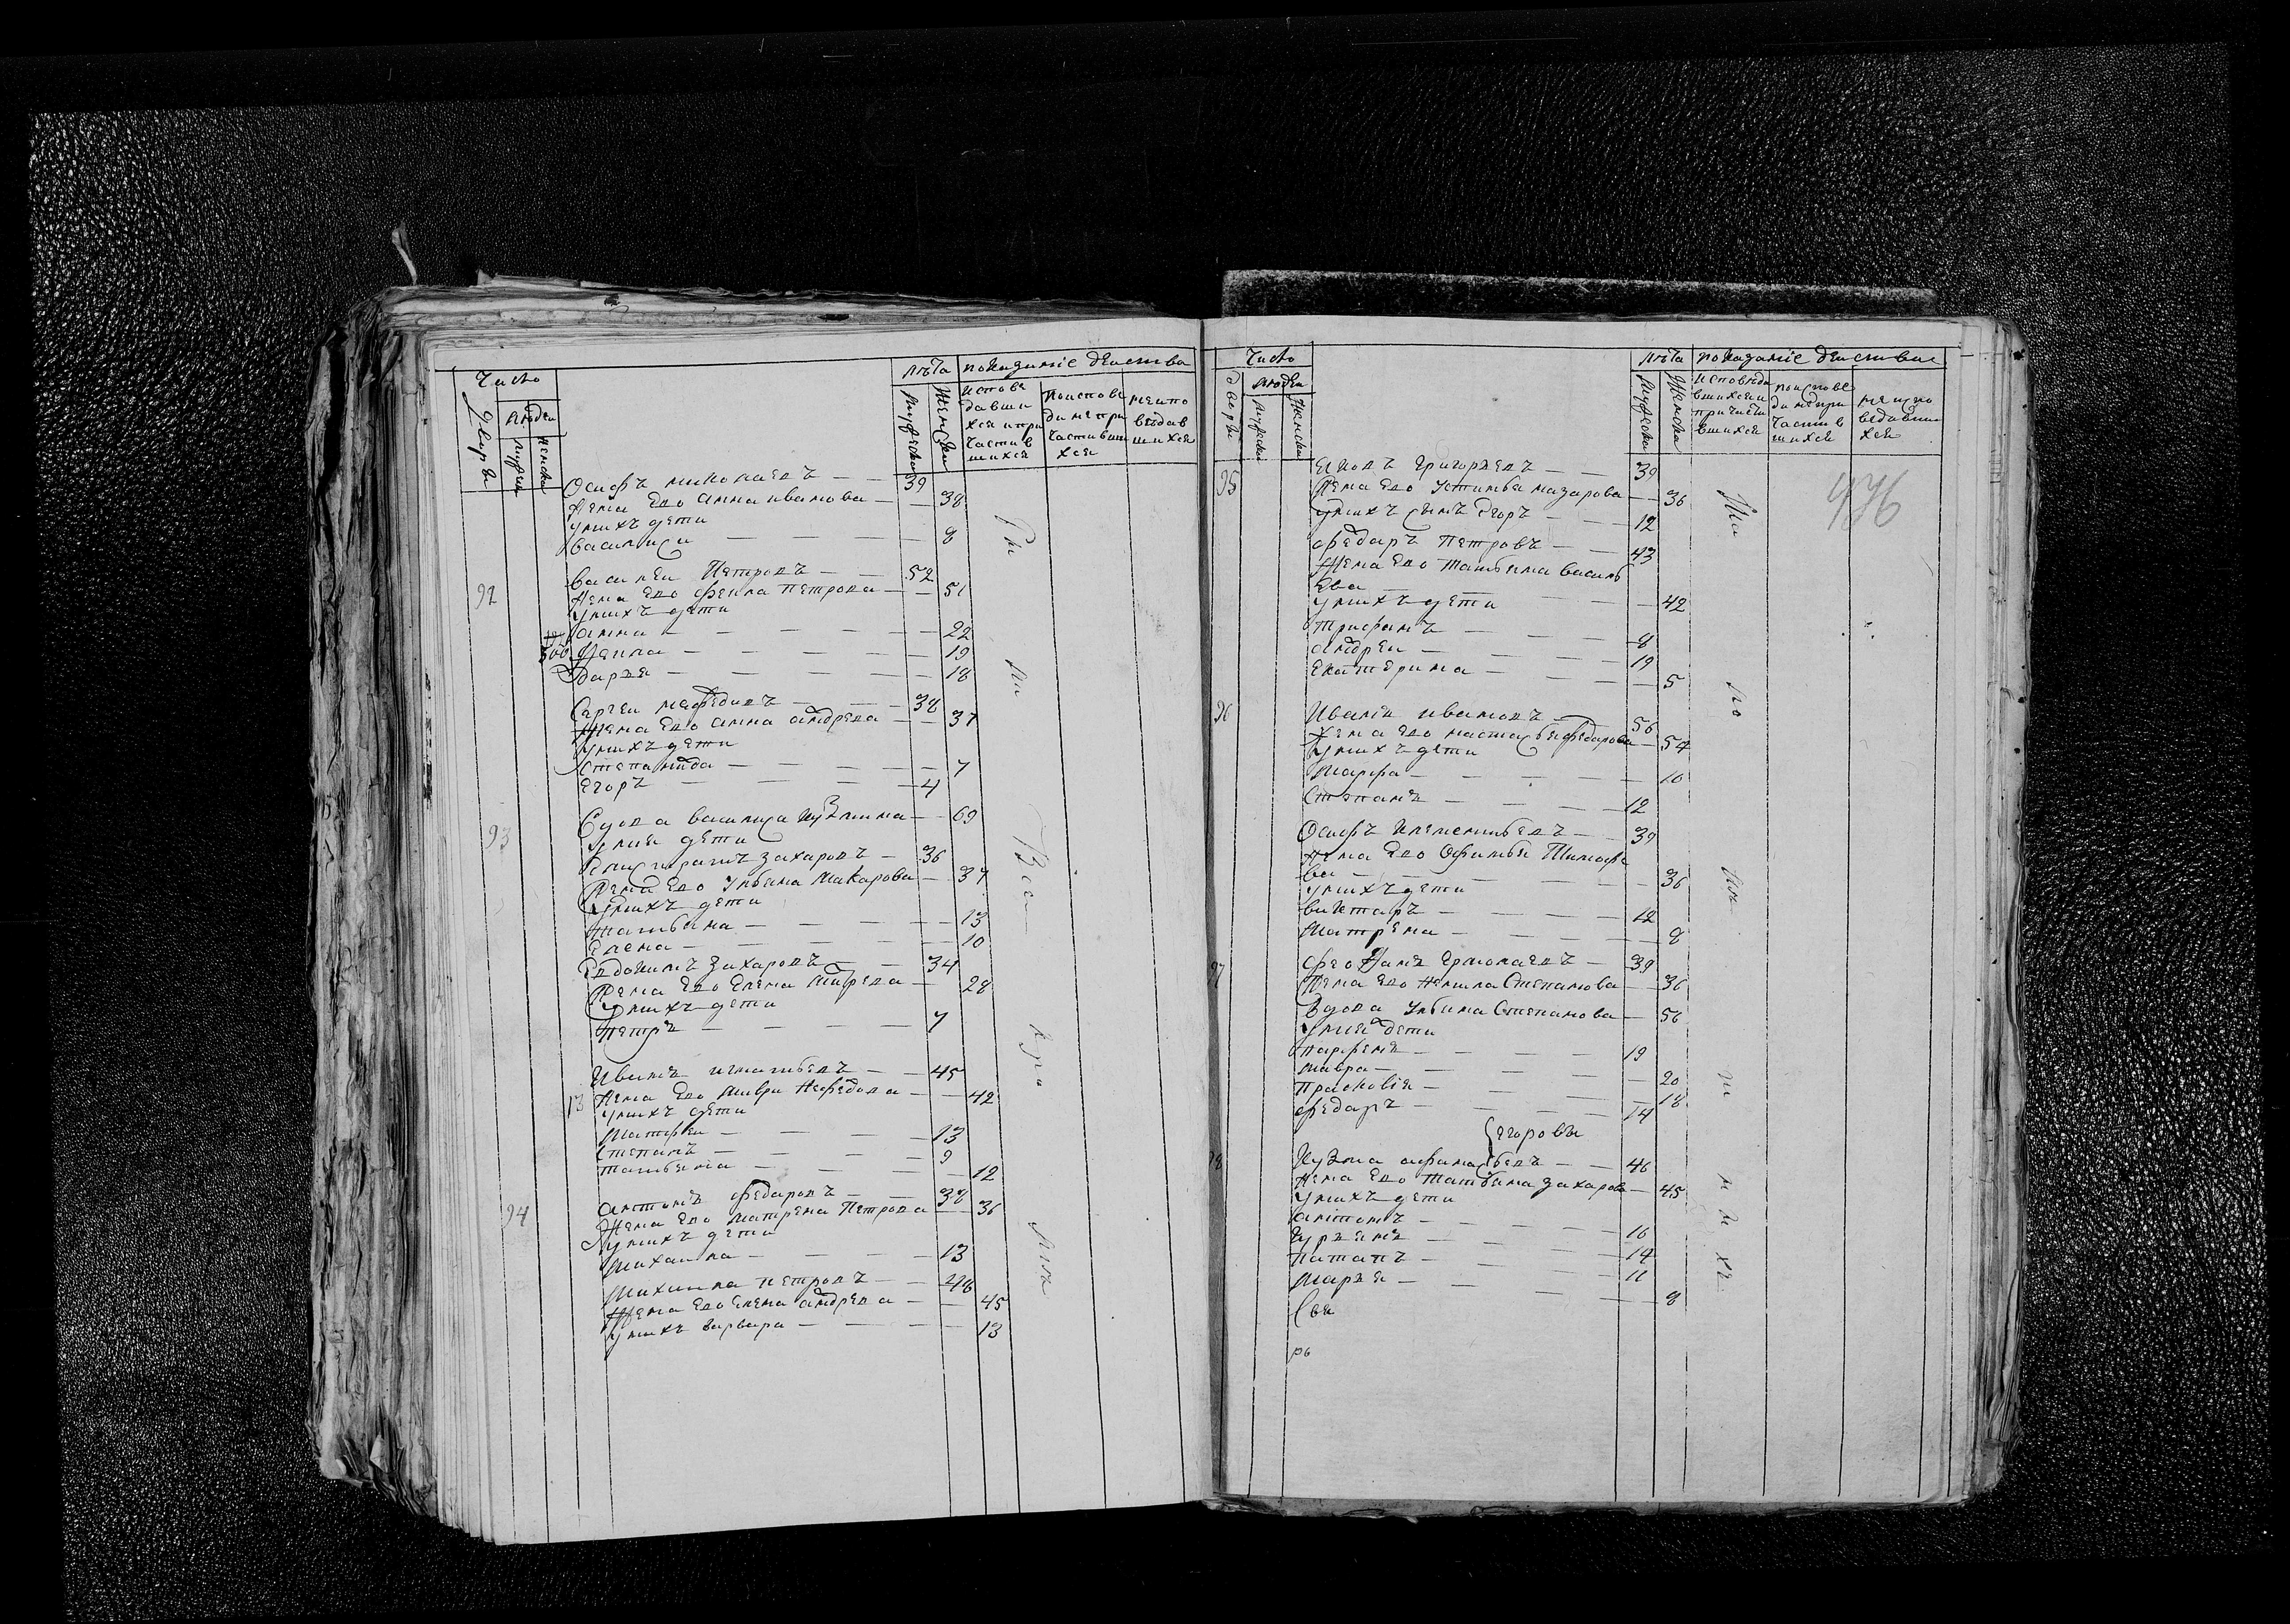 Число
Дворы
людеи
мужеск
женска
лѣта
мужески
женски
показаніе деиства
испове
давши
хся и при
частив
шихся
поиспове
ди непри
частивши
хся
неиспо
вѣдав
шихся
Осифъ николаевъ — 39
Жена Ево анна иванова — 38
уних дети
василиси — 8
92
василеи Петровъ — 52
Жена Ево фекла петрова — 51
унихъ дети
анна — 22
Дарья — 18
Сергеи мефедовъ — 38
Жена Ево анна андрева — 37
унихъ дети
степанида — 7
Егоръ — 4
93
Вдова василиса кузмина — 69
унея дети
захаровъ — 36
Жена Ево ульяна Макарова — 37
унихъ дети
татьяна — 13
Елена — 10
Евдокимъ захаровъ — 34
Жена Ево Елена Андрева — 28
унихъ дети
петръ — 7
Иванъ игнатьевъ — 45
13
Жена Ево мавра Нефедова — 42
унихъ дети
Матфеи — 13
степанъ — 9
татьяна — 12
94
антонъ федаровъ — 38
Жена Ево матрена Петрова — 36
унихъ дети
михаила — 13
михаила петровъ — 48
Жена Ево Елена андрева — 45
унихъ варвара — 13
Число
дворы
людеи
мужески
женски
лѣта
мужески
женски
показаніе деиства
исповѣда
вшихся и
причасти
вшихся
поиспове
ди непри
частив
шихся
неиспо
ведавши
хся
476
95
григорьевъ — 39
Жена Ево Устинья назарова — 36
унихъ сынъ Егоръ — 12
федаръ петровъ — 43
Жена Ево татьяна василь
Ева — 42
унихъ дети
трифанъ — 8
андреи — 19
Екатерина — 5
96
Иванъ ивановъ — 56
Жена Ево настасья федарова — 54
унихъ дети
марфа — 10
степанъ — 12
Осифъ клементьевъ — 39
Жена Ево Офимья Тимофе
ва — 36
унихъ дети
виктаръ — 12
матрена — 8
97
феофанъ Ермолаевъ — 39
Жена Ево Степанова — 36
Вдова ульяна Степанова — 56
унея дети
парфенъ — 19
мавра — 20
прасковія — 18
федаръ — 14
Егоровы
98
Кузма афанасьевъ — 46
Жена Ево татьяна захарова — 45
унихъ дети
антонъ — 16
Гурьянъ — 14
патапъ — 11
марья — 8
Свя